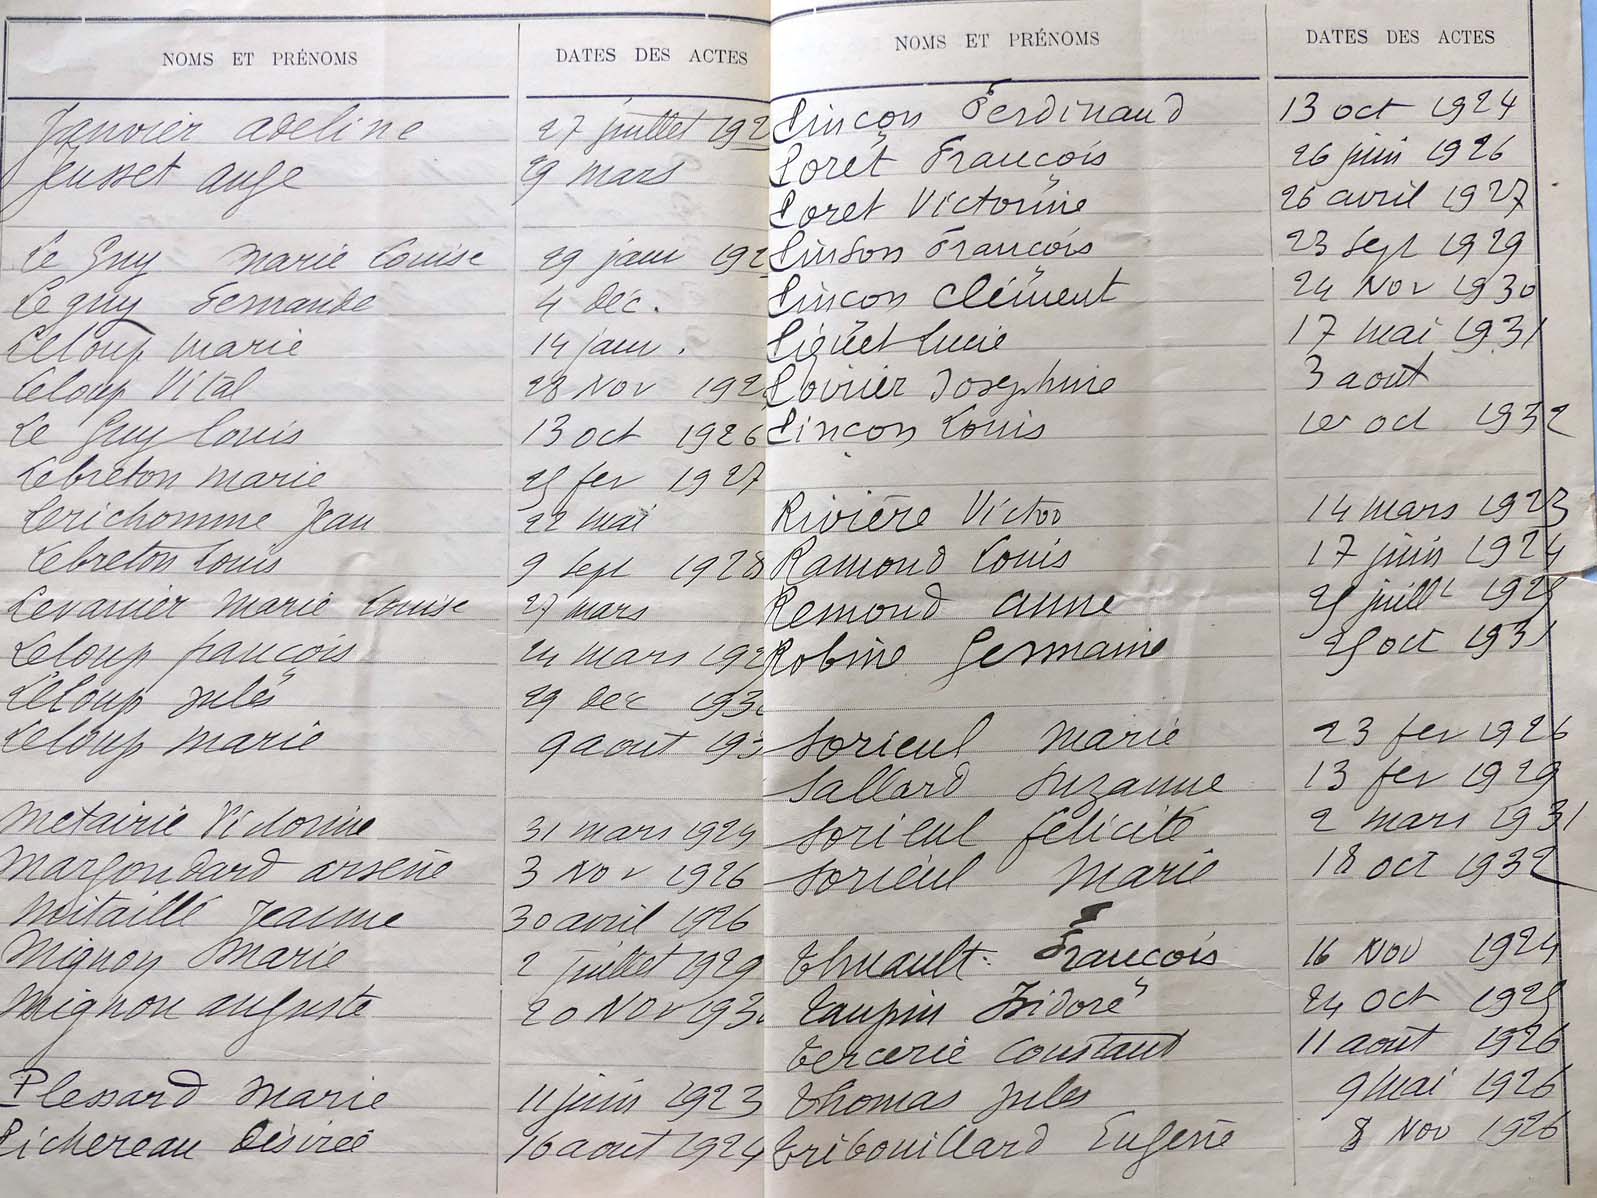 NOMS ET PRÉNOMS DATES DES ACTES
Janvier adeline 27 juillet 192
Jeusset ange 29 mars
Le Guy Marie Louise 29 janv 192
Le guy Fernande 4 déc.
Leloup marie 14 janv.
Leloup Vital 28 Nov 192
Le Guy Louis 13 oct 1926
Lebreton marie 25 fev 1927
Lerichomme Jean 22 mai
Lebreton Louis 9 sept 1928
Levannier Marie Louise 27 mars
Leloup françois 24 mars 192
Leloup Jules 29 Dec 193
Leloup marie 9 aout 193
Métairie Victorine 31 mars 1925
Margondard arsène 3 Nov 1926
Moitaillé Jeanne 30 avril 1926
Mignon Marie 2 juillet 1929
Mignon auguste 20 Nov 193
Plessard Marie 11 juin 1923
Pichereau Désirée 16 aout 1924
NOMS ET PRÉNOMS DATES DES ACTES
Pinçon Ferdinand 13 oct 1924
Poret François 26 juin 1926
Poret Victorine 26 avril 1927
Pinson François 23 sept 1929
Pinçon Clément 24 Nov 1930
Piquet Lucie 17 mai 1931
Poirier Josephine 3 aout
Pinçon Louis 1er oct 1932
Rivière Victor 14 mars 1923
Ramond Louis 17 juin 1924
Remond anne 25 juillt 1928
Robine Germaine 25 oct 1931
Sorieul Marie 23 fev 1926
Sallard Suzanne 13 fev 1929
Sorieul félicité 2 mars 1931
Sorieul Marie 18 oct 1932
Thuault François 16 Nov 1924
Taupin Isidore 24 oct 1925
Tercerie Constant 11 août 1926
Thomas Jules 9 Mai 1926
Tribouillard Eugène 8 Nov 1926